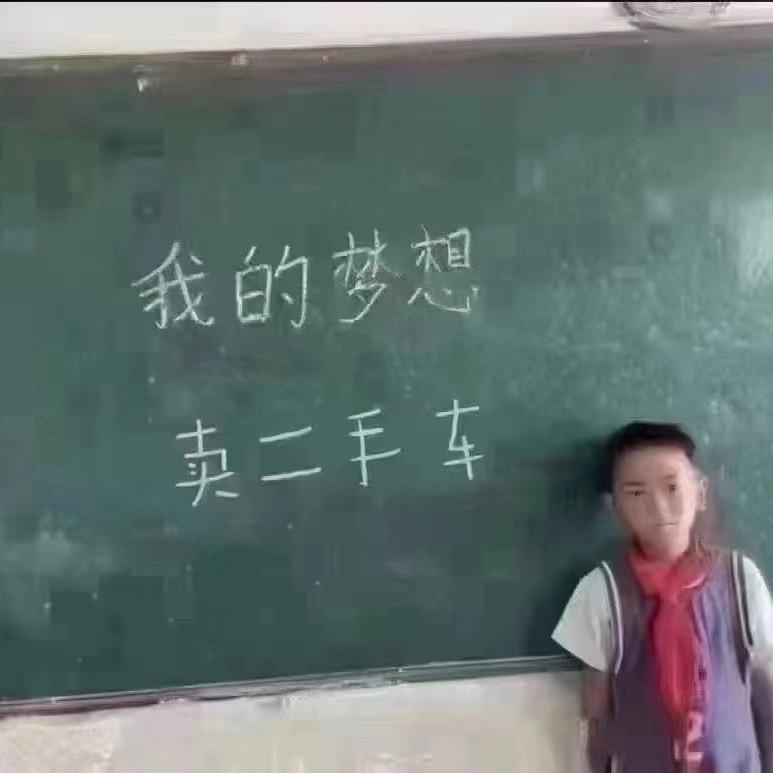 我的梦想
卖二手车